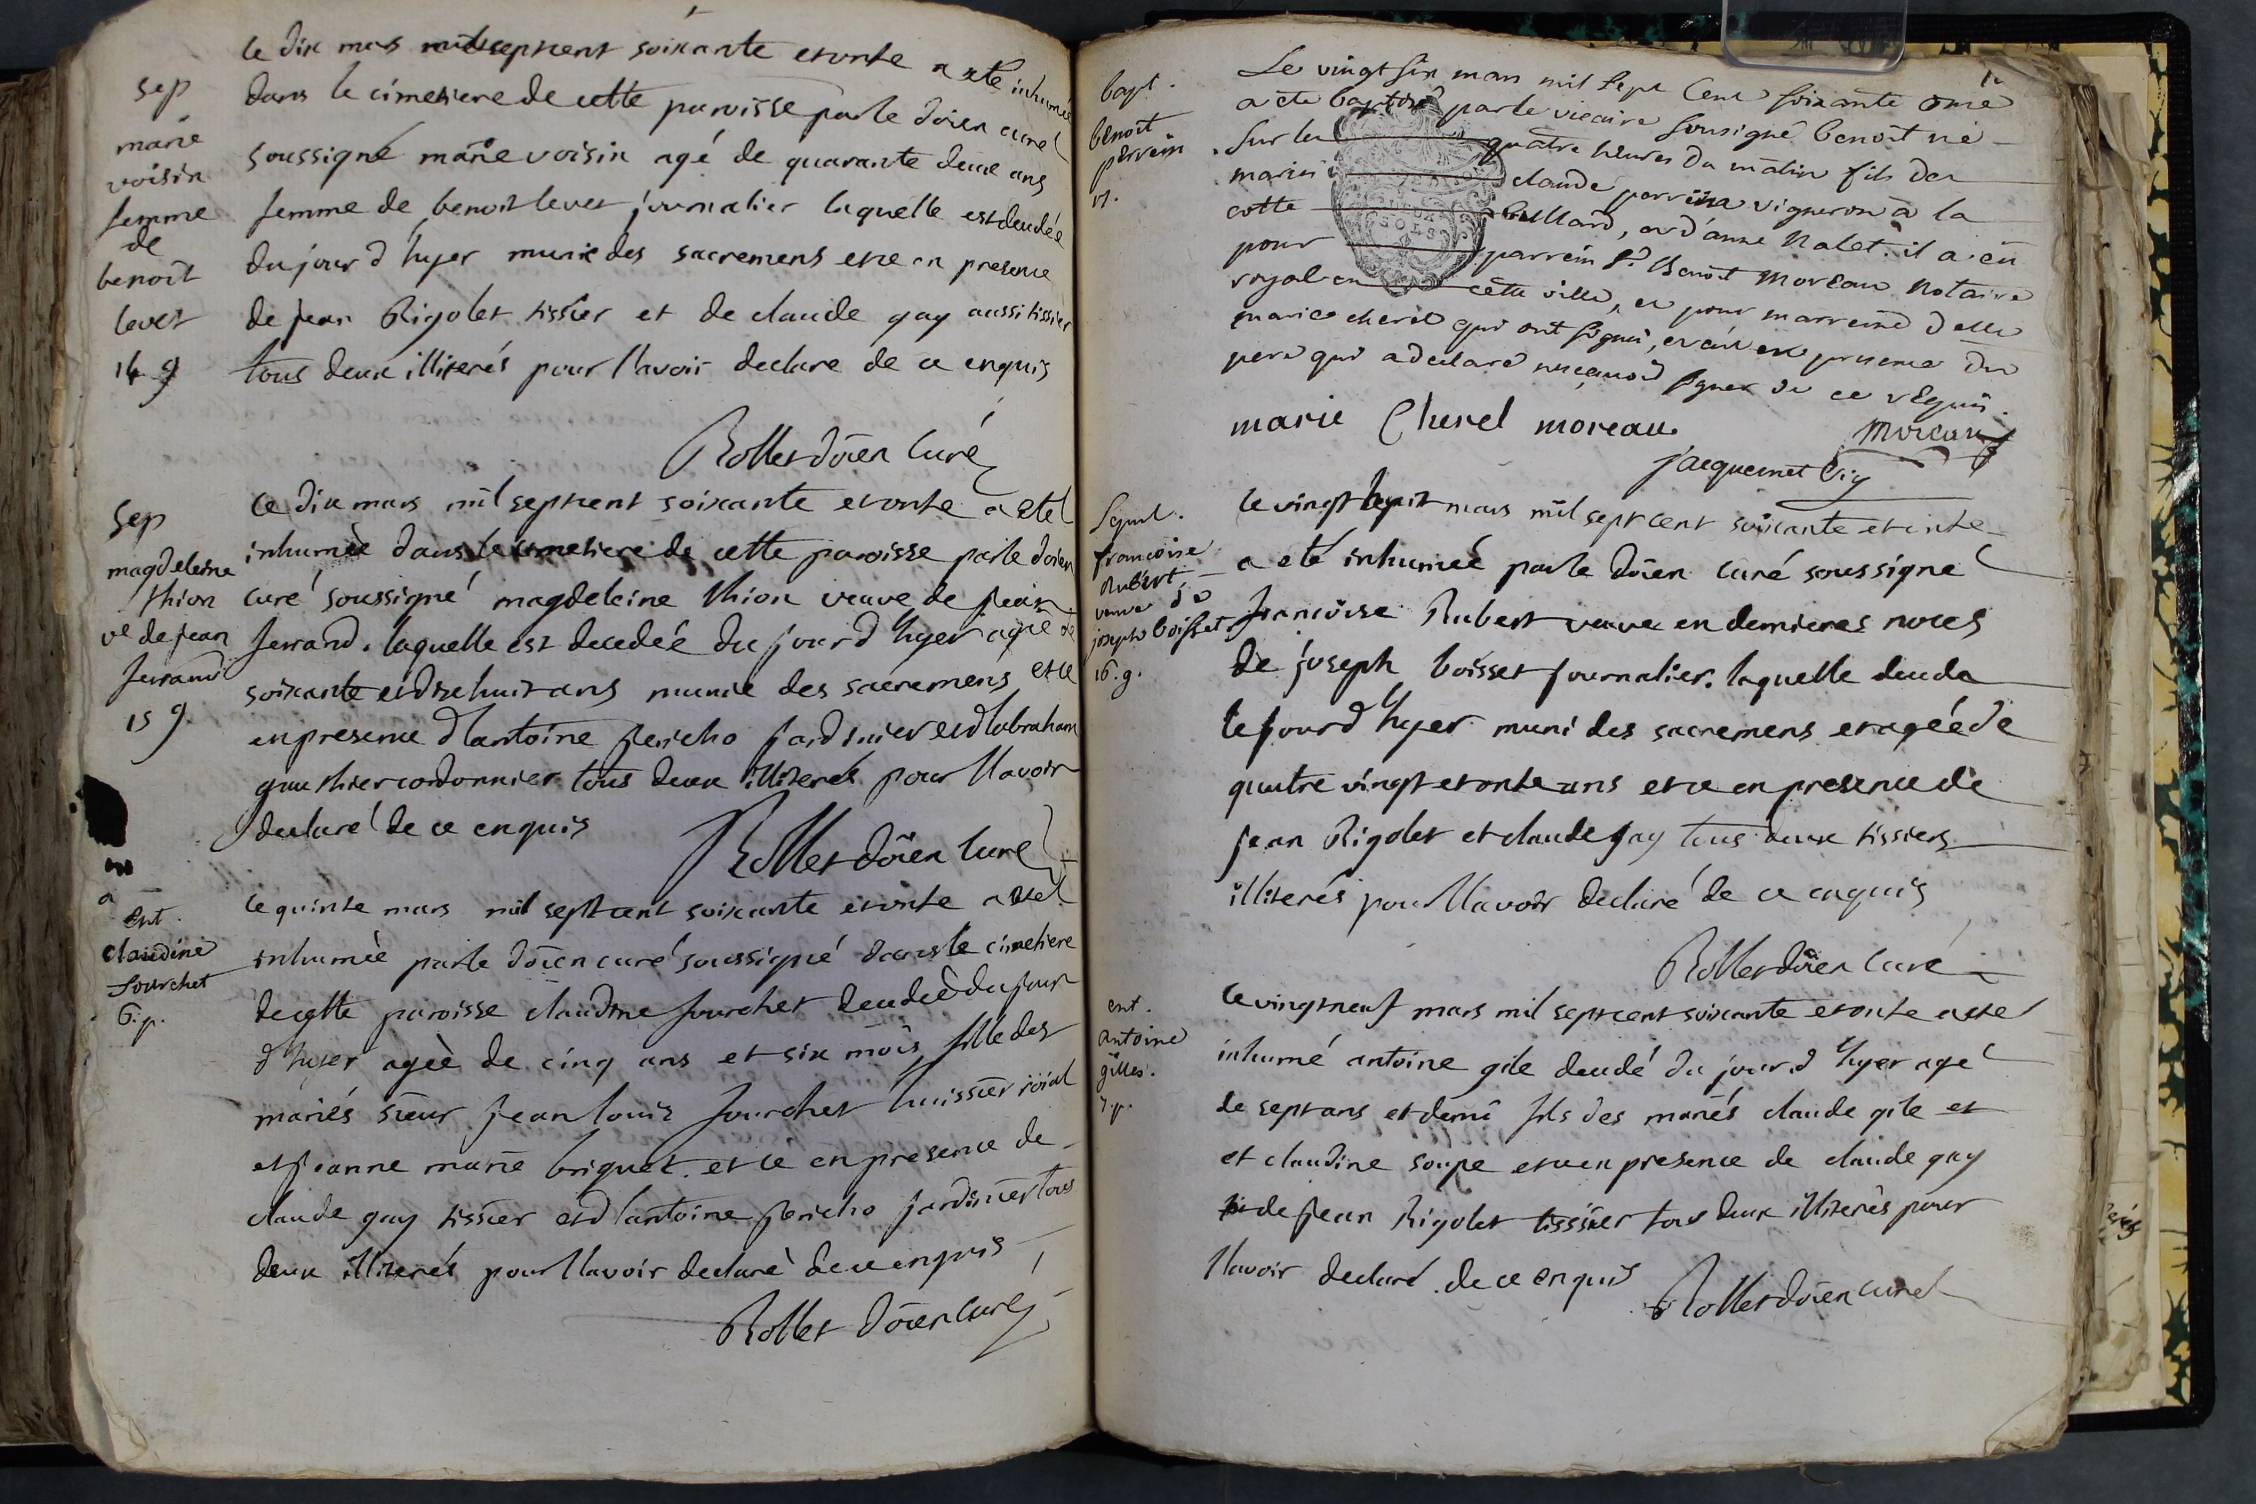 sep
marie
voisin
femme
de
benoit
levet
14 g
le dix mars mil septcent soixante et onse a eté inhumée
dans le cimetiere de cette paroisse par le doien curé
soussigné marie voisin agé de quarante deux ans
femme de benoit levet journalier laquelle est decedée
du jour d'hyer munie des sacremens et ce en presence
de jean Rigolet tissier et de claude gay aussi tissier
tous deux illiterés pour l'avoir declare de ce enquis
Rollet doien curé
sep
magdeleine
thion
ve de jean
ferrand
15 g.
le dix mars mil septcent soixante et onse a eté
inhumée dans le cimetiere de cette paroisse par le doien
curé soussigné magdeleine thion veuve de jean
ferrand. laquelle est decedée du jour d'hyer agée de
soixante et dixehuit ans munie des sacremens et ce
en presence d'antoine jericho jardinier et d'abraham
gauthier cordonnier tous deux illiterés pour l'avoir
declaré de ce enquis
Rollet doien curé
ent.
claudine
fourchet
6. p.
le quinse mars mil septcent soixante et onse a eté
inhumée par le doien curé soussigné dans le cimetiere
de cette paroisse claudine fourchet decedée du jour
d'hyer agée de cinq ans et six mois fille des
mariés sieur jean louis fourchet huissier roial
et jeanne marie briquet. et ce en presence de
claude gay tissier et d'antoine jericho jardinier tous
deux illiterés pour l'avoir declaré de ce enquis
Rollet doien curé
bapt.
benoit
perrein
17.
Le vingt six mars mil sept Cent soixante onze
a été baptisé par le vicaire sousigné benoit né
sur les quatre heures du matin fils des
mariés claude perrein vigneron à la
cotte Buillard, et d'anne Nalet. il a eu
pour parrein Sr. Benoit Moreau Notaire
royal en cette ville, et pour marreine delle
marie cherel qui ont signé, et ce en presence du
pere qui a declaré ne sçavoir signer de ce requis.
marie Cherel moreau
Moreau
jacquemet vic
Sepul.
francoise
Rubert,
veuve de
joseph boisset
16. g.
le vingt sept mars mil sept cent soixante et onse
a eté inhumée par le doien curé soussigné
francoise Rubert veuve en dernieres noces
de joseph boisset journalier. laquelle deceda
le jour d'hyer muni des sacremens et agée de
quatre vingt et onse ans et ce en presence de
jean Rigolet et claude gay tous deux tissiers
illiterés pour l'avoir declaré de ce enquis
Rollet doien curé
ent.
antoine
gilles.
7 p.
le vingt neuf mars mil septcent soixante et onse a eté
inhumé antoine gile decedé du jour d'hyer agé
de sept ans et demi fils des mariés claude gile et
et claudine soupe et ce en presence de claude gay
de jean Rigolet tissier tous deux illiterés pour
l'avoir declaré de ce enquis
Rollet doien curé